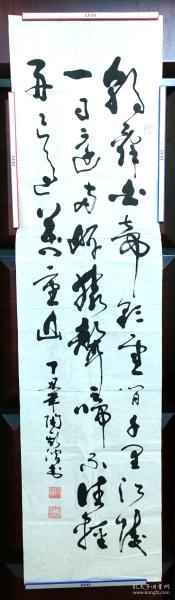 朝辭白帝彩雲間千里江陵
一日還兩岸猿聲啼不住輕
舟已過萬重山
丁丑年陶书